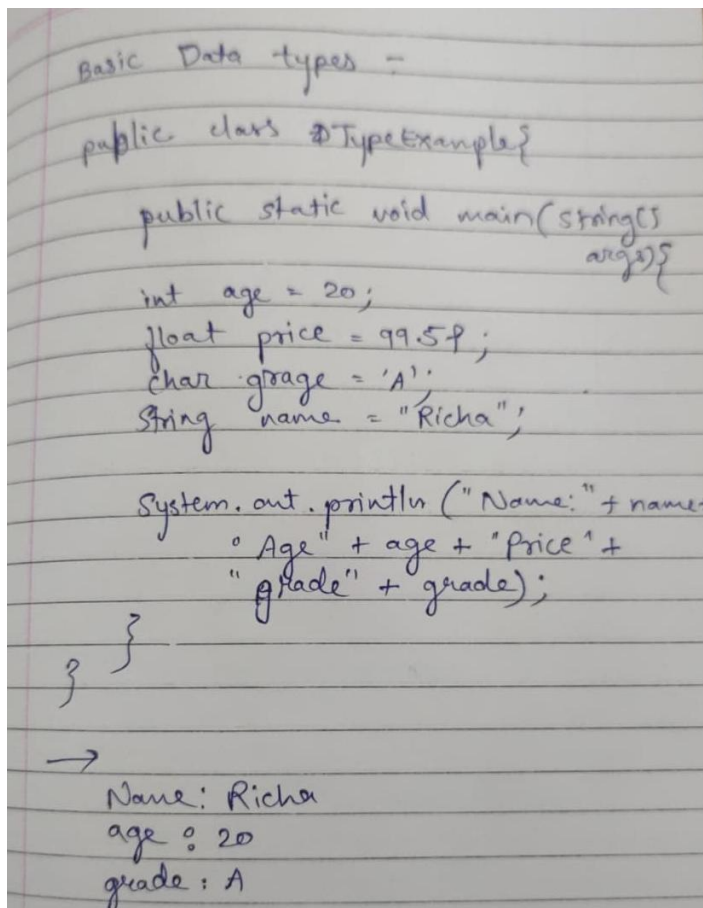 Basic Data types -
public class DTypeExample{
public static void main(string[]
args){
int age = 20;
float price = 99.5f;
char grage = 'A';
String name = "Richa";
System.out.println("Name:" + name+
"Age" + age + "Price" +
"grade" + grade);
}
}
→
Name: Richa
age : 20
grade : A